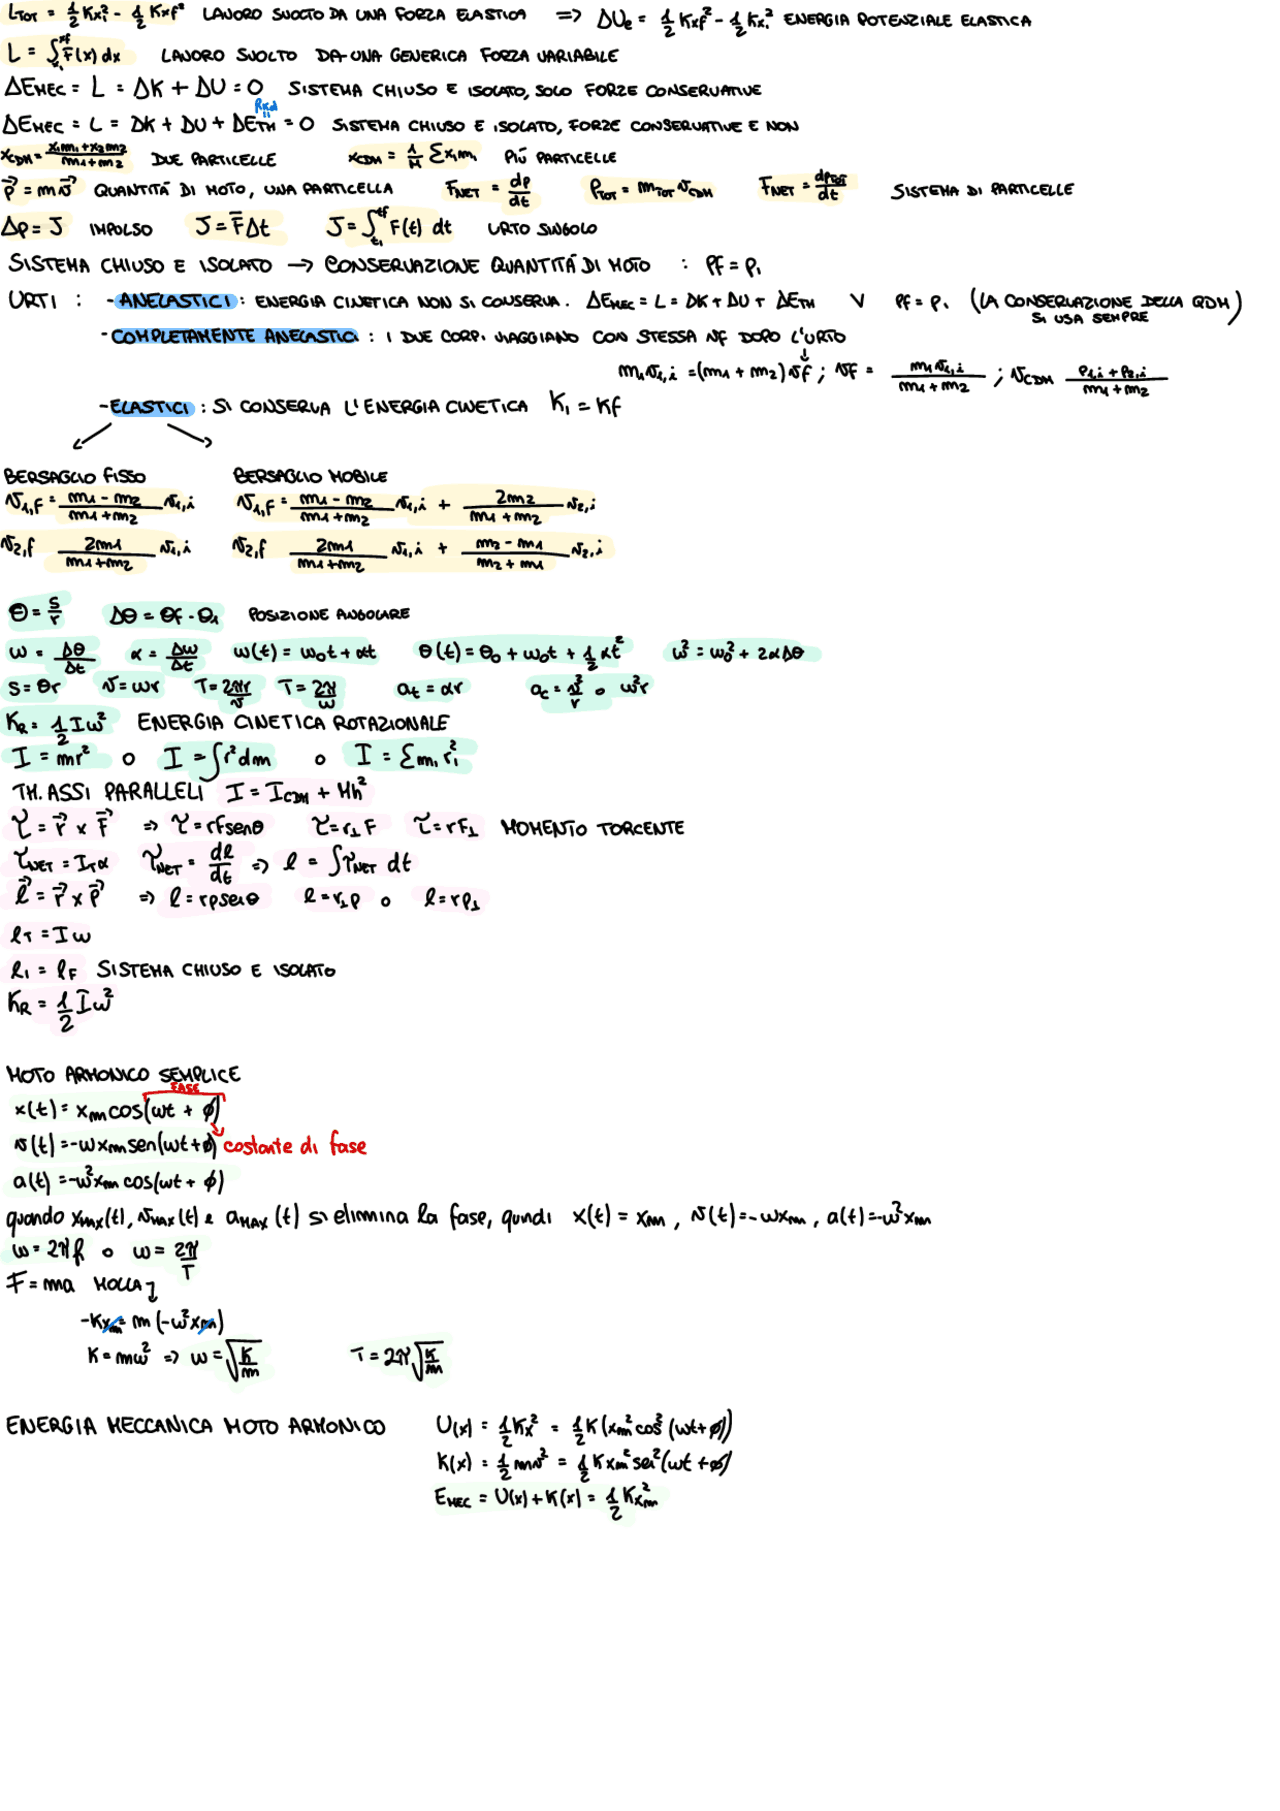 L_TOT = 1/2 Kxi² - 1/2 Kxf² LAVORO SVOLTO DA UNA FORZA ELASTICA => ΔUe = 1/2 Kxf² - 1/2 Kxi² ENERGIA POTENZIALE ELASTICA
L = ∫_xi^xf F(x) dx LAVORO SVOLTO DA UNA GENERICA FORZA VARIABILE
ΔE_MEC = L = ΔK + ΔU = 0 SISTEMA CHIUSO E ISOLATO, SOLO FORZE CONSERVATIVE
ΔE_MEC = L = ΔK + ΔU + ΔE_TH = 0 SISTEMA CHIUSO E ISOLATO, FORZE CONSERVATIVE E NON
x_CDM = (x₁m₁ + x₂m₂)/(m₁ + m₂) DUE PARTICELLE x_CDM = 1/M Σximi PIÙ PARTICELLE
p⃗ = mv⃗ QUANTITÀ DI MOTO, UNA PARTICELLA F_NET = dp/dt p_TOT = m_TOT v_CDM F_NET = dp_TOT/dt SISTEMA DI PARTICELLE
Δp = J IMPULSO J = F̄Δt J = ∫_ti^tf F(t) dt URTO SINGOLO
SISTEMA CHIUSO E ISOLATO → CONSERVAZIONE QUANTITÀ DI MOTO : pf = pi
URTI : - ANELASTICI : ENERGIA CINETICA NON SI CONSERVA. ΔE_MEC = L = ΔK + ΔU + ΔE_TH V pf = pi (LA CONSERVAZIONE DELLA QDM SI USA SEMPRE)
- COMPLETAMENTE ANELASTICI : I DUE CORPI VIAGGIANO CON STESSA vf DOPO L'URTO
m₁v₁,i = (m₁ + m₂) vf ; vf = m₁v₁,i/(m₁ + m₂) ; v_CDM (p₁,i + p₂,i)/(m₁ + m₂)
- ELASTICI : SI CONSERVA L'ENERGIA CINETICA Ki = Kf
BERSAGLIO FISSO BERSAGLIO MOBILE
v₁,f = (m₁ - m₂)/(m₁ + m₂) v₁,i v₁,f = (m₁ - m₂)/(m₁ + m₂) v₁,i + 2m₂/(m₁ + m₂) v₂,i
v₂,f 2m₁/(m₁ + m₂) v₁,i v₂,f 2m₁/(m₁ + m₂) v₁,i + (m₂ - m₁)/(m₂ + m₁) v₂,i
θ = s/r Δθ = θf - θi POSIZIONE ANGOLARE
ω = Δθ/Δt α = Δω/Δt ω(t) = ω₀t + αt θ(t) = θ₀ + ω₀t + 1/2 αt² ω² = ω₀² + 2αΔθ
s = θr v = ωr T = 2πr/v T = 2π/ω at = αr ac = v²/r o ω²r
K_R = 1/2 Iω² ENERGIA CINETICA ROTAZIONALE
I = mr² o I = ∫r²dm o I = Σmi ri²
TH. ASSI PARALLELI I = I_CDM + Mh²
τ = r⃗ x F⃗ => τ = rFsenθ τ = r⊥F τ = rF⊥ MOMENTO TORCENTE
τ_NET = I_Tα τ_NET = dl/dt => l = ∫τ_NET dt
l⃗ = r⃗ x p⃗ => l = rpsenθ l = r⊥p o l = rp⊥
l_T = Iω
li = l_F SISTEMA CHIUSO E ISOLATO
K_R = 1/2 Iω²
MOTO ARMONICO SEMPLICE
FASE
x(t) = xm cos(ωt + ϕ)
v(t) = -ωxm sen(ωt + ϕ) costante di fase
a(t) = -ω²xm cos(ωt + ϕ)
quando x_MAX(t), v_MAX(t) e a_MAX(t) si elimina la fase, quindi x(t) = xm, v(t) = -ωxm, a(t) = -ω²xm
ω = 2πf o ω = 2π/T
F = ma MOLLA
-Kxm = m(-ω²xm)
K = mω² => ω = √(K/m) T = 2π√(K/m)
ENERGIA MECCANICA MOTO ARMONICO U(x) = 1/2 Kx² = 1/2 K(xm²cos²(ωt + ϕ))
K(x) = 1/2 mv² = 1/2 Kxm²sen²(ωt + ϕ)
E_MEC = U(x) + K(x) = 1/2 Kxm²